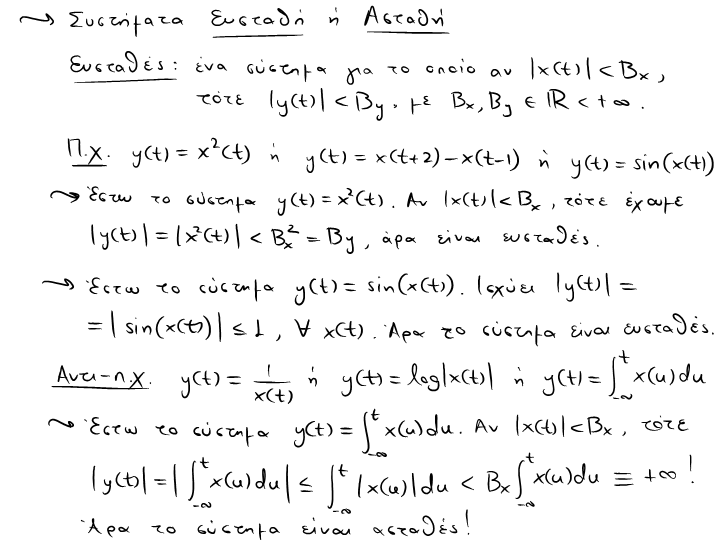 ⤳ Συστήματα Ευσταθή ή Ασταθή
Ευσταθές: ένα σύστημα για το οποίο αν |x(t)| < Bx,
τότε |y(t)| < By, με Bx, By ∈ ℝ < +∞.
Π.χ. y(t) = x²(t) ή y(t) = x(t+2) - x(t-1) ή y(t) = sin(x(t))
⤳ Έστω το σύστημα y(t) = x²(t). Αν |x(t)| < Bx, τότε έχουμε
|y(t)| = |x²(t)| < Bx² = By, άρα είναι ευσταθές.
⤳ Έστω το σύστημα y(t) = sin(x(t)). Ισχύει |y(t)| =
= |sin(x(t))| ≤ 1, ∀ x(t). Άρα το σύστημα είναι ευσταθές.
Αντι-π.χ. y(t) = 1/x(t) ή y(t) = log|x(t)| ή y(t) = ∫_{-∞}^{t} x(u)du
⤳ Έστω το σύστημα y(t) = ∫_{-∞}^{t} x(u)du. Αν |x(t)| < Bx, τότε
|y(t)| = |∫_{-∞}^{t} x(u)du| ≤ ∫_{-∞}^{t} |x(u)|du < Bx ∫_{-∞}^{t} x(u)du ≡ +∞!
Άρα το σύστημα είναι ασταθές!